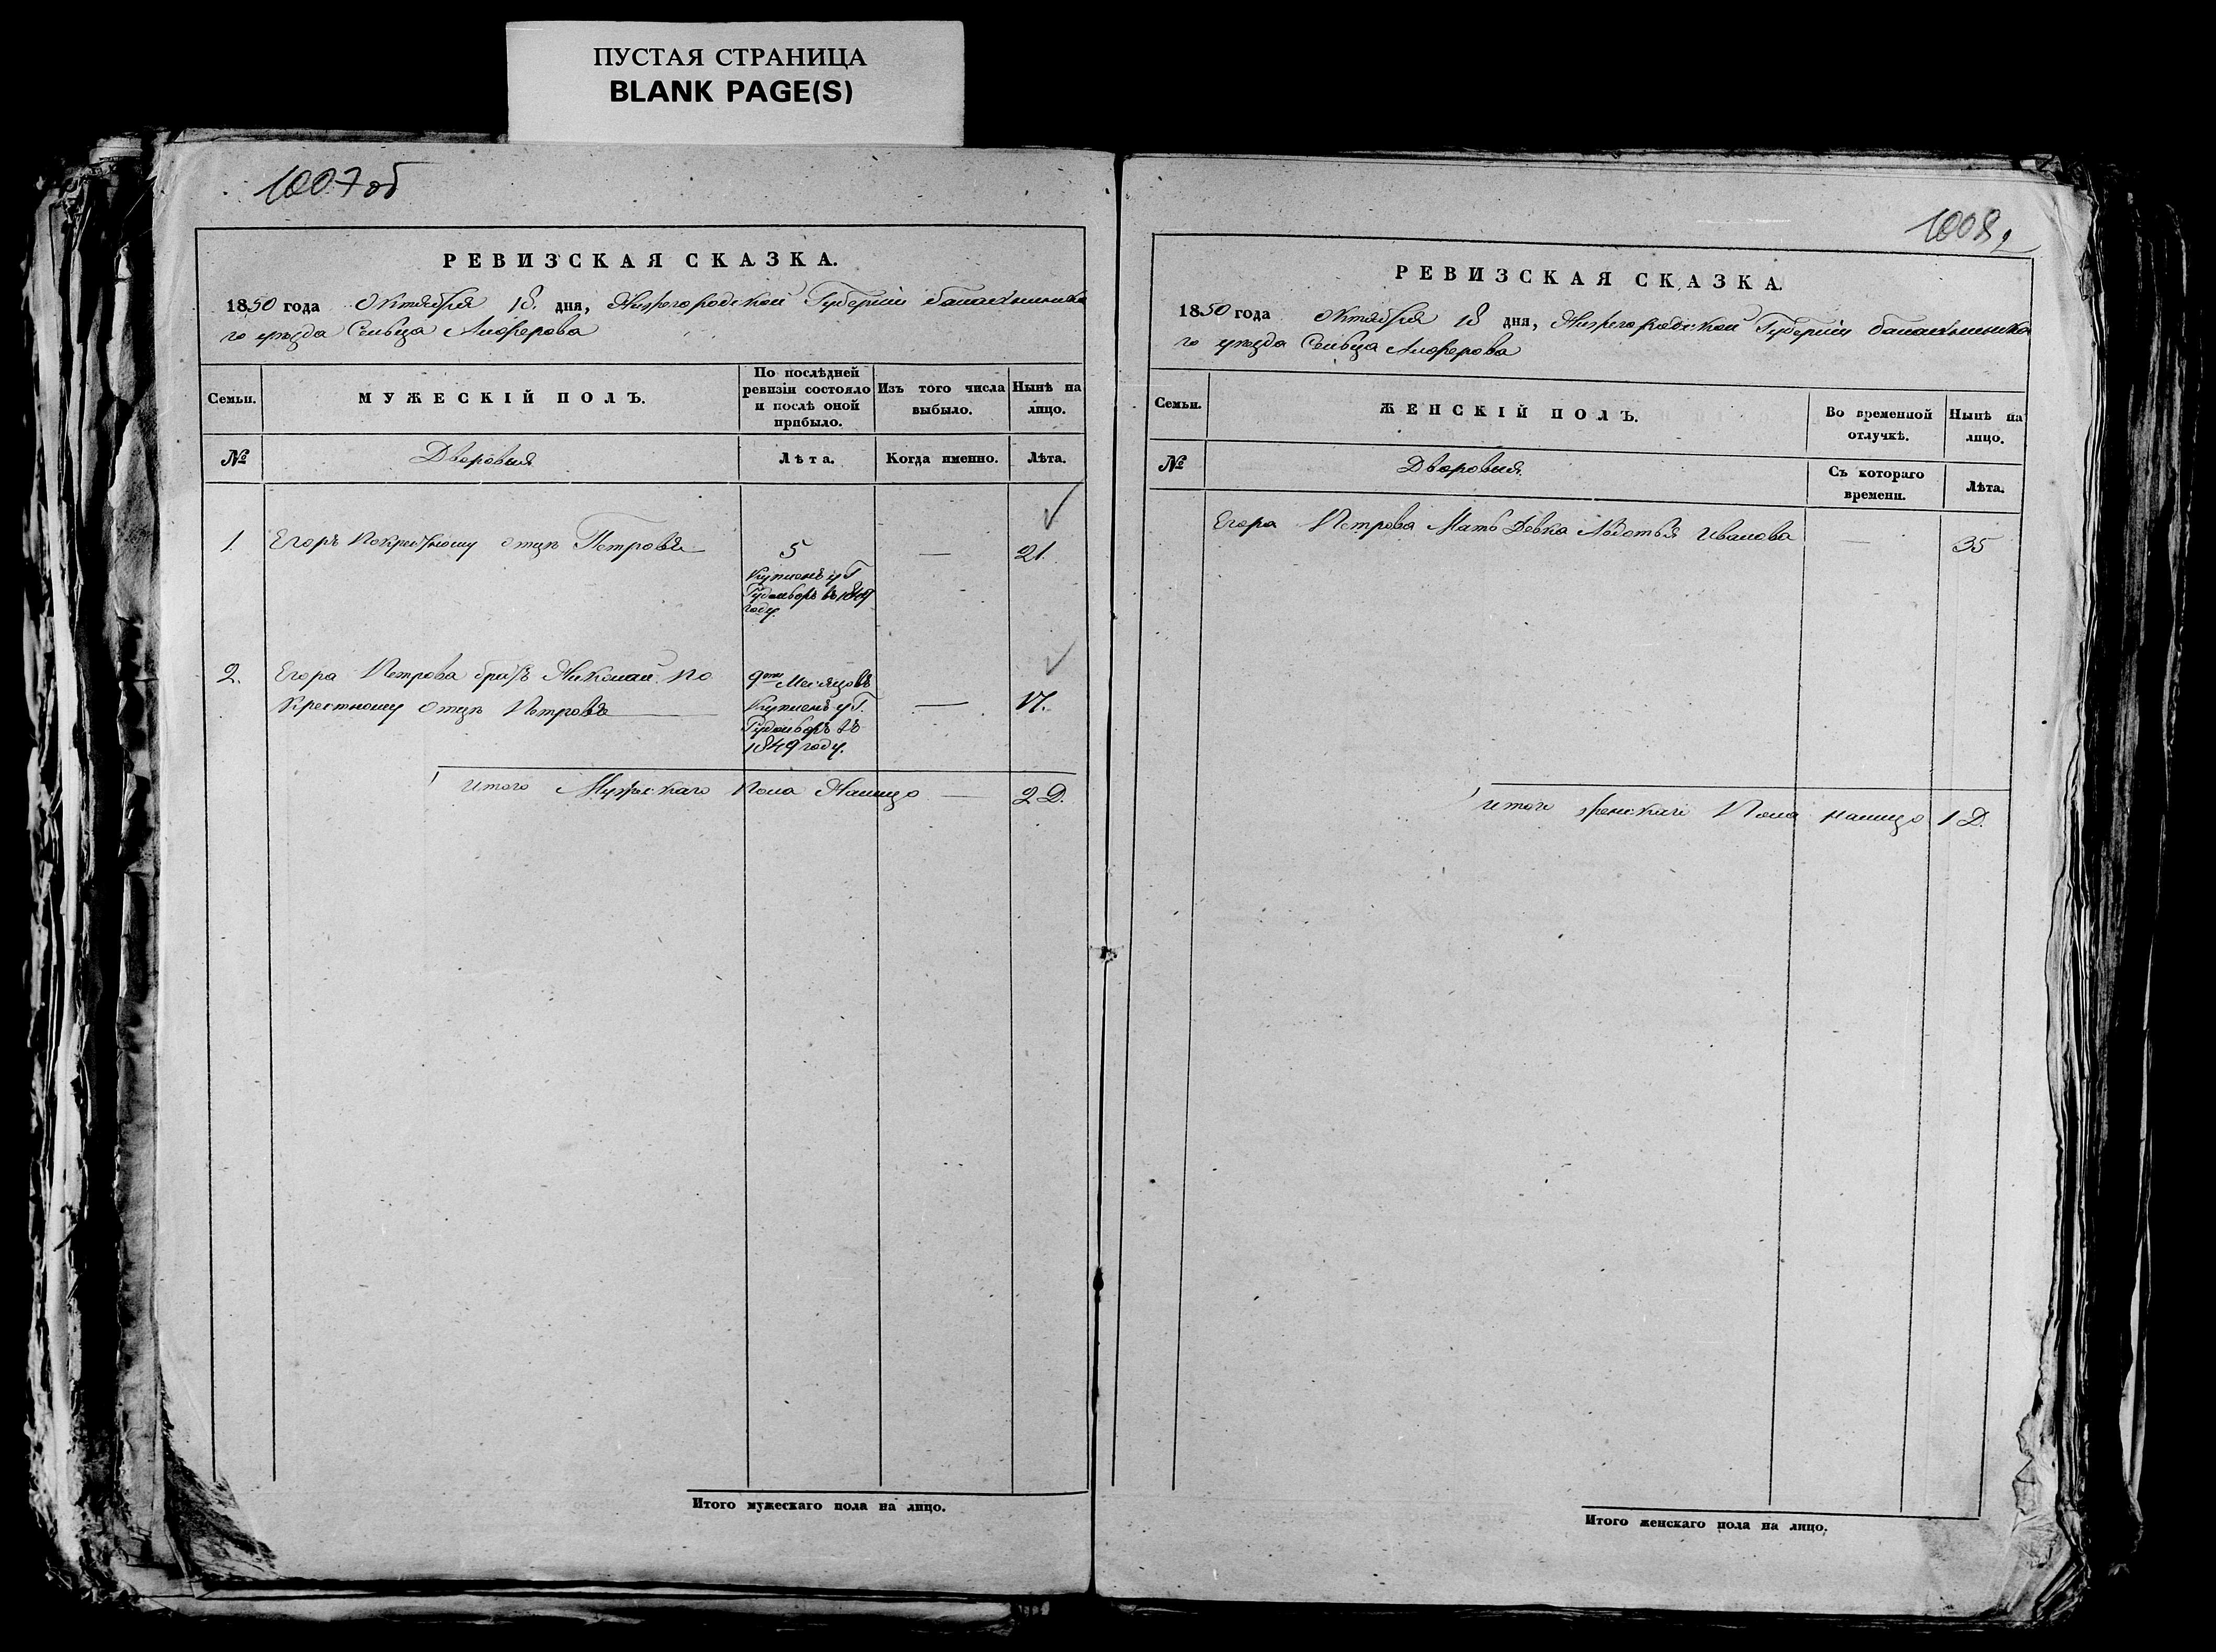 ПУСТАЯ СТРАНИЦА
BLANK PAGE(S)
1007 об
РЕВИЗСКАЯ СКАЗКА.
1850 года Октября 18. дня, Нижегородской Губернiи балахнинска
го уезда Сельца Алферова
Семьи.
МУЖЕСКІЙ ПОЛЪ.
По послѣдней
ревизіи состояло
и послѣ оной
прибыло.
Изъ того числа
выбыло.
Нынѣ на
лицо.
№
Дворовыя
Лѣта.
Когда именно.
Лѣта.
1. Егоръ Покрестному отцу Петровъ 5 — 21.
Купленъ у Г.
въ 1849
году.
2. Егора Петрова братъ Николай По 9ти Месяцовъ
Крестному Отцу Петровъ Купленъ у Г. — 17.
въ
1849 году.
Итого Мужескаго Пола Налицо — 2 Д.
Итого мужескаго пола на лицо.
1008
РЕВИЗСКАЯ СКАЗКА.
1850 года Октября 18 дня, Нижегородской Губернiи балахнинска
го уезда Сельца Алферова
Семьи.
ЖЕНСКІЙ ПОЛЪ.
Во временной
отлучкѣ.
Нынѣ на
лицо.
№
Дворовыя.
Съ котораго
времени.
Лѣта.
Егора Петрова Мать Девка Авдотья Иванова — 35
Итого женскаго Пола налицо 1 Д.
Итого женскаго пола на лицо.